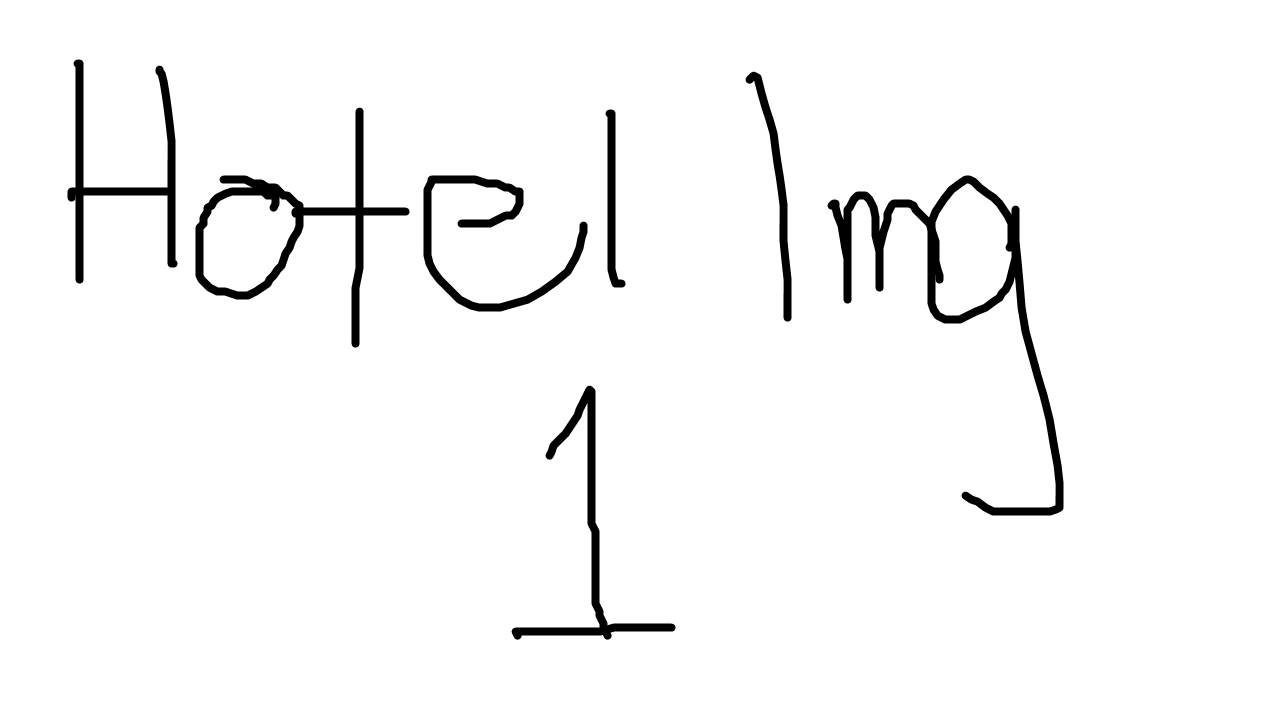 Hotel Img
1